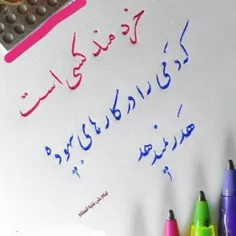 خردمند کسی است
که دَمی را در کارهای بیهوده
هَدَر نمیدهد
امام علی علیه السلام